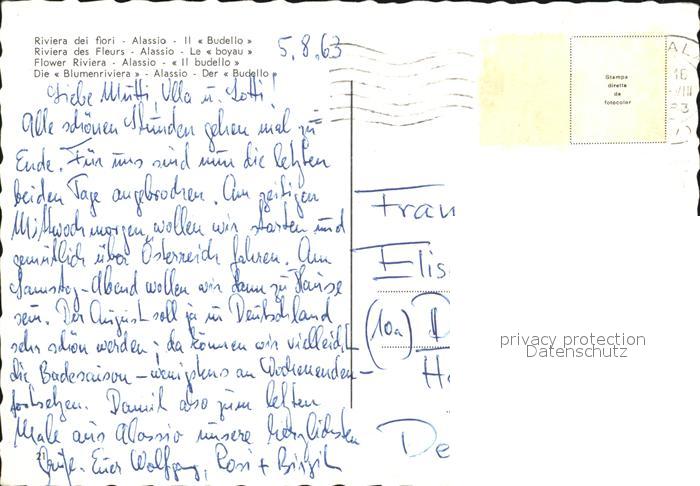 Riviera dei fiori - Alassio - Il « Budello »
Riviera des Fleurs - Alassio - Le « boyau »
Flower Riviera - Alassio - « Il budello »
Die « Blumenriviera » - Alassio - Der « Budello »
5.8.63
Stampa
diretta
da
fotocolor
Liebe Mutti, Ulla u. Lotti!
Alle schönen Stunden gehen mal zu
Ende. Für uns sind nun die letzten
beiden Tage angebrochen. Am zeitigen
Mittwochmorgen wollen wir starten und
gemütlich über Österreich fahren. Am
Samstag-Abend wollen wir dann zu Hause
sein. Der August soll ja in Deutschland
sehr schön werden; da können wir vielleicht
die Badesaison - wenigstens an Wochenenden -
fortsetzen. Damit also zum letzten
Male aus Alassio unsere herzlichsten
Grüße. Euer Wolfgang, Rosi + Birgit
21
Frau
Elis
(10a) D
H
De
privacy protection
Datenschutz